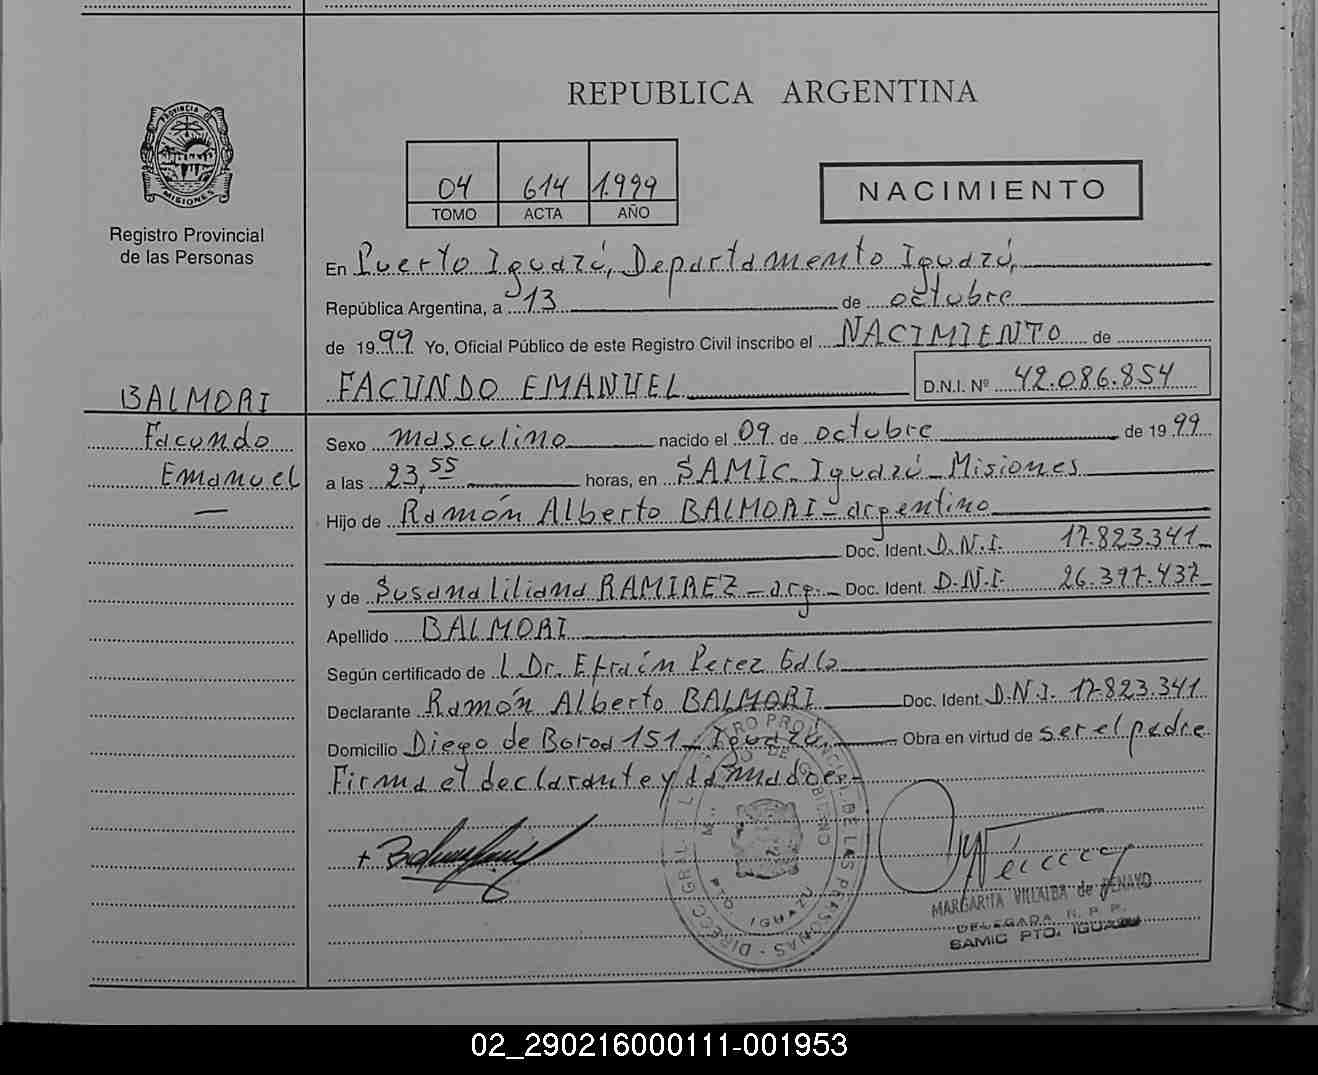 REPUBLICA ARGENTINA
PROVINCIA DE
MISIONES
Registro Provincial
de las Personas
04 614 1.999
TOMO ACTA AÑO
NACIMIENTO
En Puerto Iguazú, Departamento Iguazú,
República Argentina, a 13 de octubre
de 1999 Yo, Oficial Público de este Registro Civil inscribo el NACIMIENTO de
FACUNDO EMANUEL D.N.I. Nº 42.086.854
BALMORI
Facundo
Emanuel
Sexo masculino nacido el 09 de octubre de 1999
a las 23,55 horas, en SAMIC. Iguazú - Misiones
Hijo de Ramón Alberto BALMORI - argentino
Doc. Ident. D.N.I. 17.823.341
y de Susana liliana RAMIREZ - arg. Doc. Ident. D.N.I. 26.397.437
Apellido BALMORI
Según certificado de l Dr. Efraín Perez
Declarante Ramón Alberto BALMORI Doc. Ident. D.N.I. 17.823.341
Domicilio Diego de 151 - Iguazú. Obra en virtud de ser el padre
Firma el declarante y
DIRECC. GRAL. DEL REGISTRO PROVINCIAL DE LAS PERSONAS
M. DE GOBIERNO
PTO. IGUAZU
MARGARITA VILLALBA de
DELEGADA R. P. P.
SAMIC PTO. IGUAZU
02_290216000111-001953